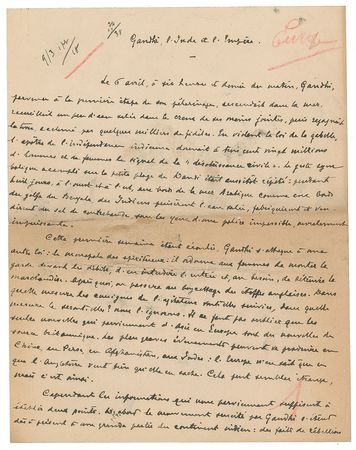 Gandhi, l'Inde et l'Empire.
Le 6 avril, à six heures et demie du matin, Gandhi,
parvenu à la première étape de son pèlerinage, descendait dans la mer,
recueillait un peu d'eau salée dans le creux de ses mains jointes, puis regagnait
la terre, acclamé par quelques milliers de fidèles. En violant la loi de la gabelle
l'apôtre de l'indépendance indienne donnait à trois cent vingt millions
d'hommes et de femmes le signal de la « désobéissance civile ». Le geste sym-
bolique accompli sur la petite plage de Dandi était aussitôt répété : pendant
huit jours, à l'ouest et à l'est, aux bords de la mer Arabique comme aux bords
du golfe du Bengale, des Indiens puisèrent l'eau salée, fabriquèrent et ven-
dirent du sel de contrebande sous les yeux d'une police impossible ou seulement
impuissante.
Cette première semaine étant écoulée, Gandhi s'attaque à une
autre loi : le monopole des spiritueux : il ordonne aux femmes de monter la
garde devant les débits, d'en interdire l'entrée et, au besoin, de détruire la
marchandise. Après quoi, on passera au boycottage des étoffes anglaises. Dans
quelle mesure les consignes de l'agitateur sont-elles suivies, dans quelle
mesure le seront-elles ? nous l'ignorons. Il ne faut pas oublier que les
seules nouvelles qui parviennent d'Asie en Europe sont des nouvelles de
source britannique. Les plus graves événements peuvent se produire en
Chine, en Perse, en Afghanistan, aux Indes : l'Europe n'en sait que ce
que l'Angleterre veut bien qu'elle en sache. Cela peut sembler étrange,
mais c'est ainsi.
Cependant les informations qui nous parviennent suffisent à
établir deux points. D'abord le mouvement suscité par Gandhi s'étend
dès à présent à une grande partie du continent indien : des faits de rébellion